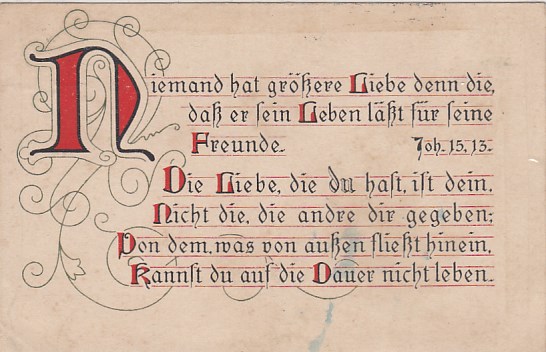 Niemand hat größere Liebe denn die,
daß er sein Leben läßt für seine
Freunde. Joh. 15, 13.
Die Liebe, die du hast, ist dein,
Nicht die, die andre dir gegeben;
Von dem, was von außen fließt hinein,
Kannst du auf die Dauer nicht leben.